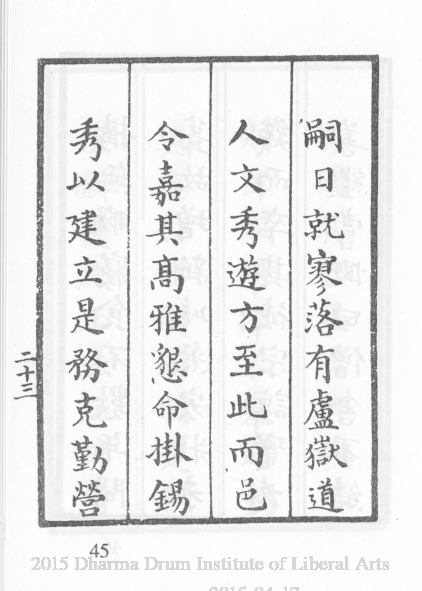 嗣日就寥落有盧嶽道
人文秀遊方至此而邑
令嘉其高雅懇命掛錫
秀以建立是務克勤營
二十三
45
2015 Dharma Drum Institute of Liberal Arts